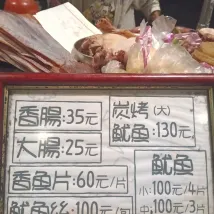 香腸:35元
大腸:25元
香魚片:60元/片
魷魚絲:100元/
炭烤(大)
魷魚:130元
魷魚
小:100元/4片
中:100元/3片